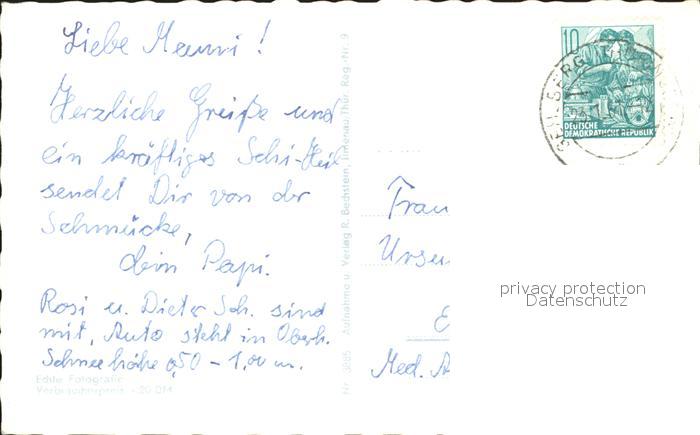 Liebe Mammi!
Herzliche Grüße und
ein kräftiges Schi-Heil
sendet Dir von der
Schmücke,
dein Papi.
Rosi u. Dieter Sch. sind
mit, Auto steht in Oberh.
Schneehöhe 0,50 - 1,00 m.
Echte Fotografie
Verbraucherpreis -,20 DM
Aufnahme u. Verlag R. Bechstein, Ilmenau/Thür. Reg.-Nr. 9
10
DEUTSCHE
DEMOKRATISCHE REPUBLIK
Frau
Med.
privacy protection
Datenschutz